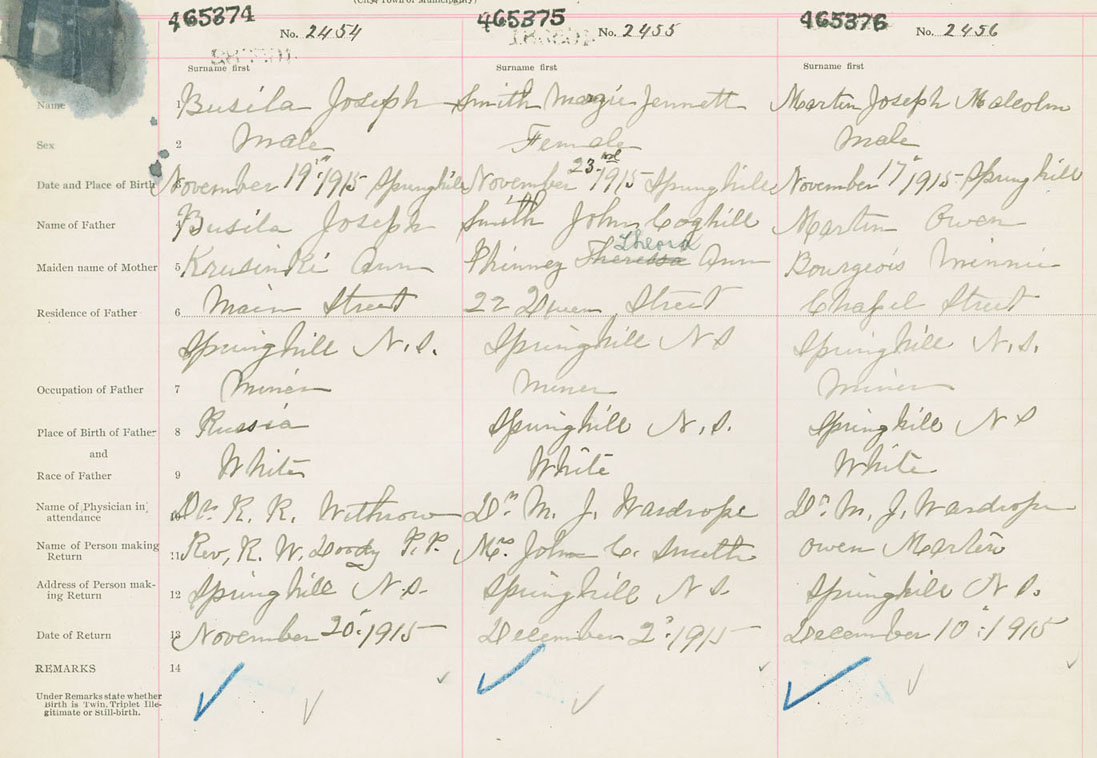 (City, Town or Municipality)
465374 465375 465376
No. 2454 No. 2455 No. 2456
Surname first Surname first Surname first
Name 1 Busila Joseph Smith Margie Jennett Martin Joseph Malcolm
Sex 2 Male Female Male
Date and Place of Birth 3 November 19" 1915 Springhill November 23rd 1915 Springhill November 17" 1915 Springhill
Name of Father 4 Busila Joseph Smith John Coghill Martin Owen
Maiden name of Mother 5 Krusinki Ann Phinney Theressa Theora Ann Bourgeois Minnie
Residence of Father 6 Main Street 22 Queen Street Chapel Street
Springhill N.S. Springhill N S Springhill N.S.
Occupation of Father 7 Miner Miner Miner
Place of Birth of Father 8 Russia Springhill N.S. Springhill N S
and
Race of Father 9 White White White
Name of Physician in attendance 10 Dr. R. R. Withrow Dr. M. J. Wardrope Dr. M. J. Wardrope
Name of Person making Return 11 Rev, R. W. Doody P.P. Mr. John C. Smith Owen Martin
Address of Person making Return 12 Springhill N.S. Springhill N S. Springhill N S.
Date of Return 13 November 20" 1915 December 2" 1915 December 10" 1915
REMARKS 14
Under Remarks state whether
Birth is Twin, Triplet Ille-
gitimate or Still-birth.